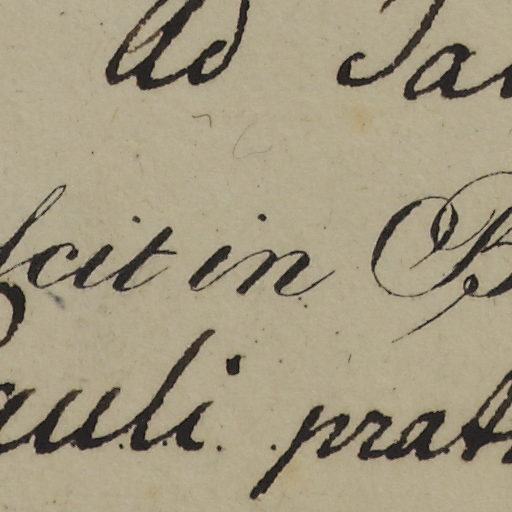 ad Ja
scit in B
Pauli prat